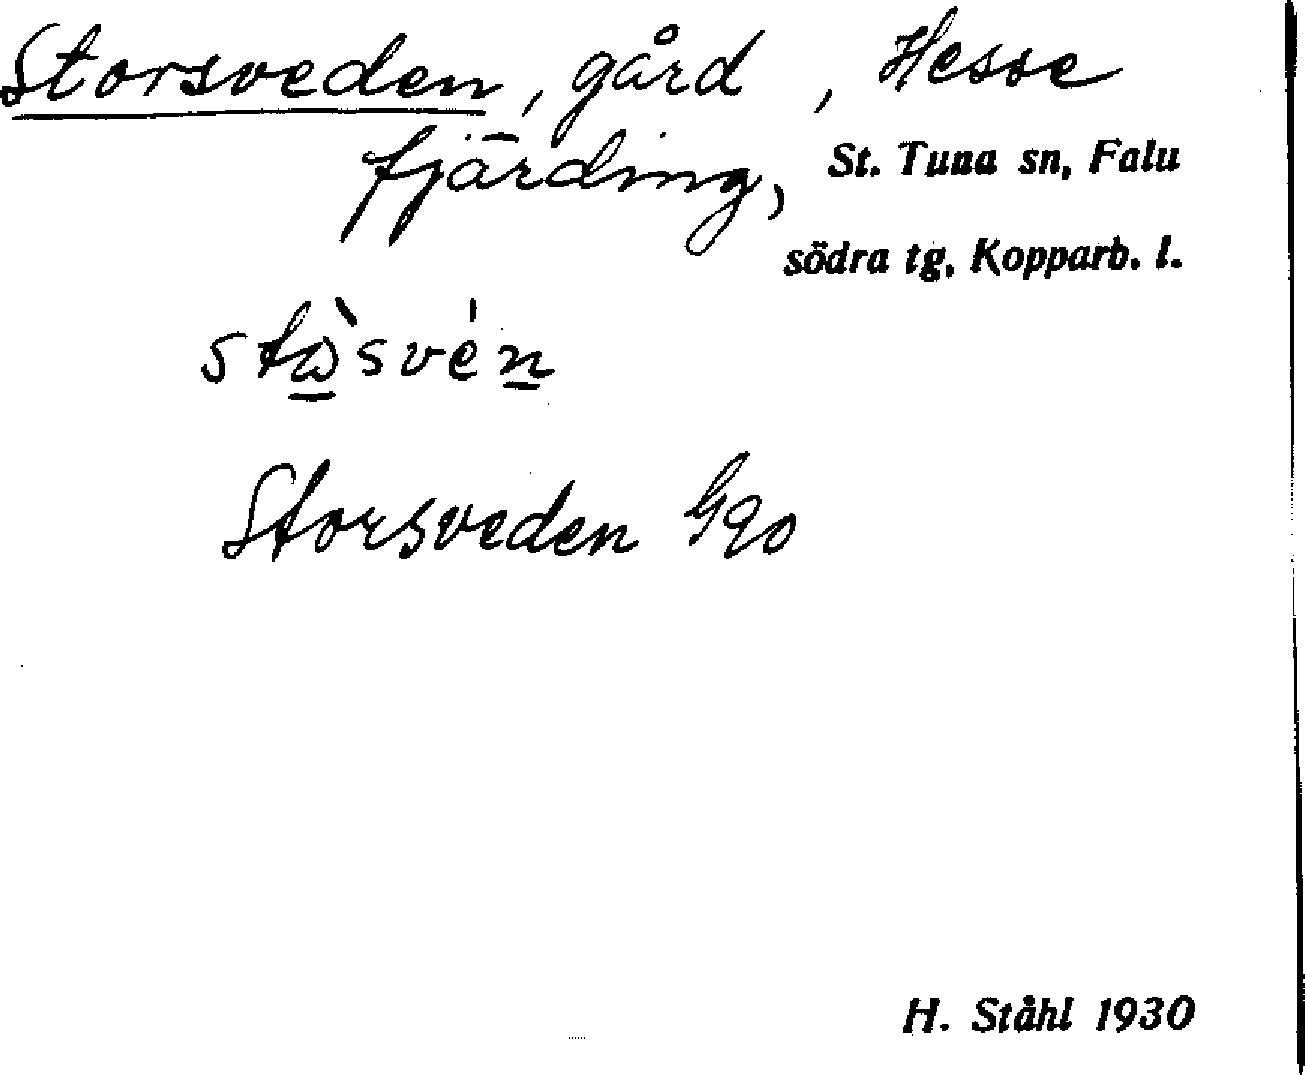 Storsveden, gård, Hesse
fjärding, St. Tuna sn, Falu
södra tg, Kopparb. l.
Storsveden
H. Ståhl 1930